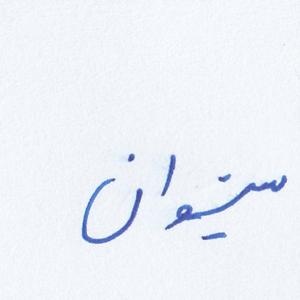 ستیوان